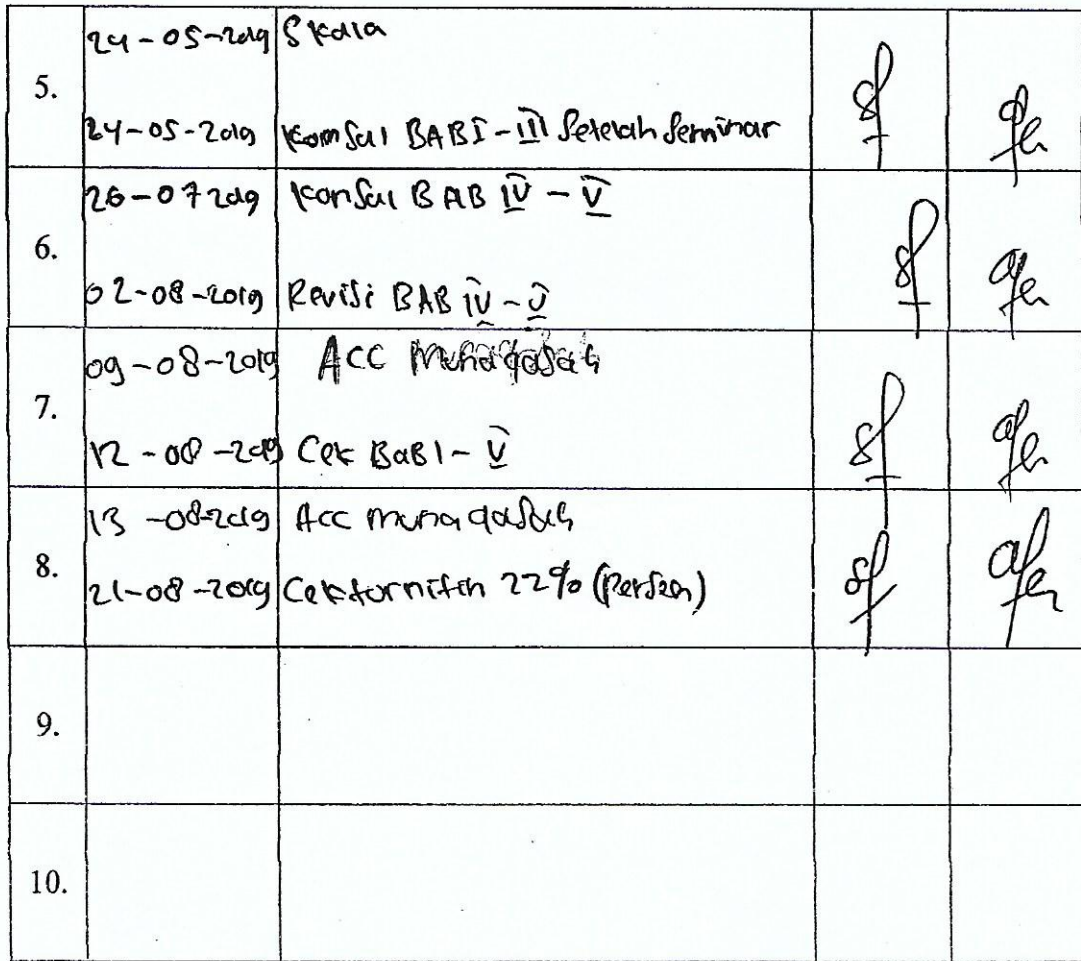 24-05-2019 Skala
5.
24-05-2019 Konsul BAB I-III Setelah Seminar
26-07 2019 Konsul BAB IV - V
6.
02-08-2019 Revisi BAB IV - V
09-08-2019 Acc Munaqasah
7.
12-08-2019 Cek BaB I - V
13-08-2019 Acc munaqasah
8.
21-08-2019 Cek turnitin 22% (Persen)
9.
10.